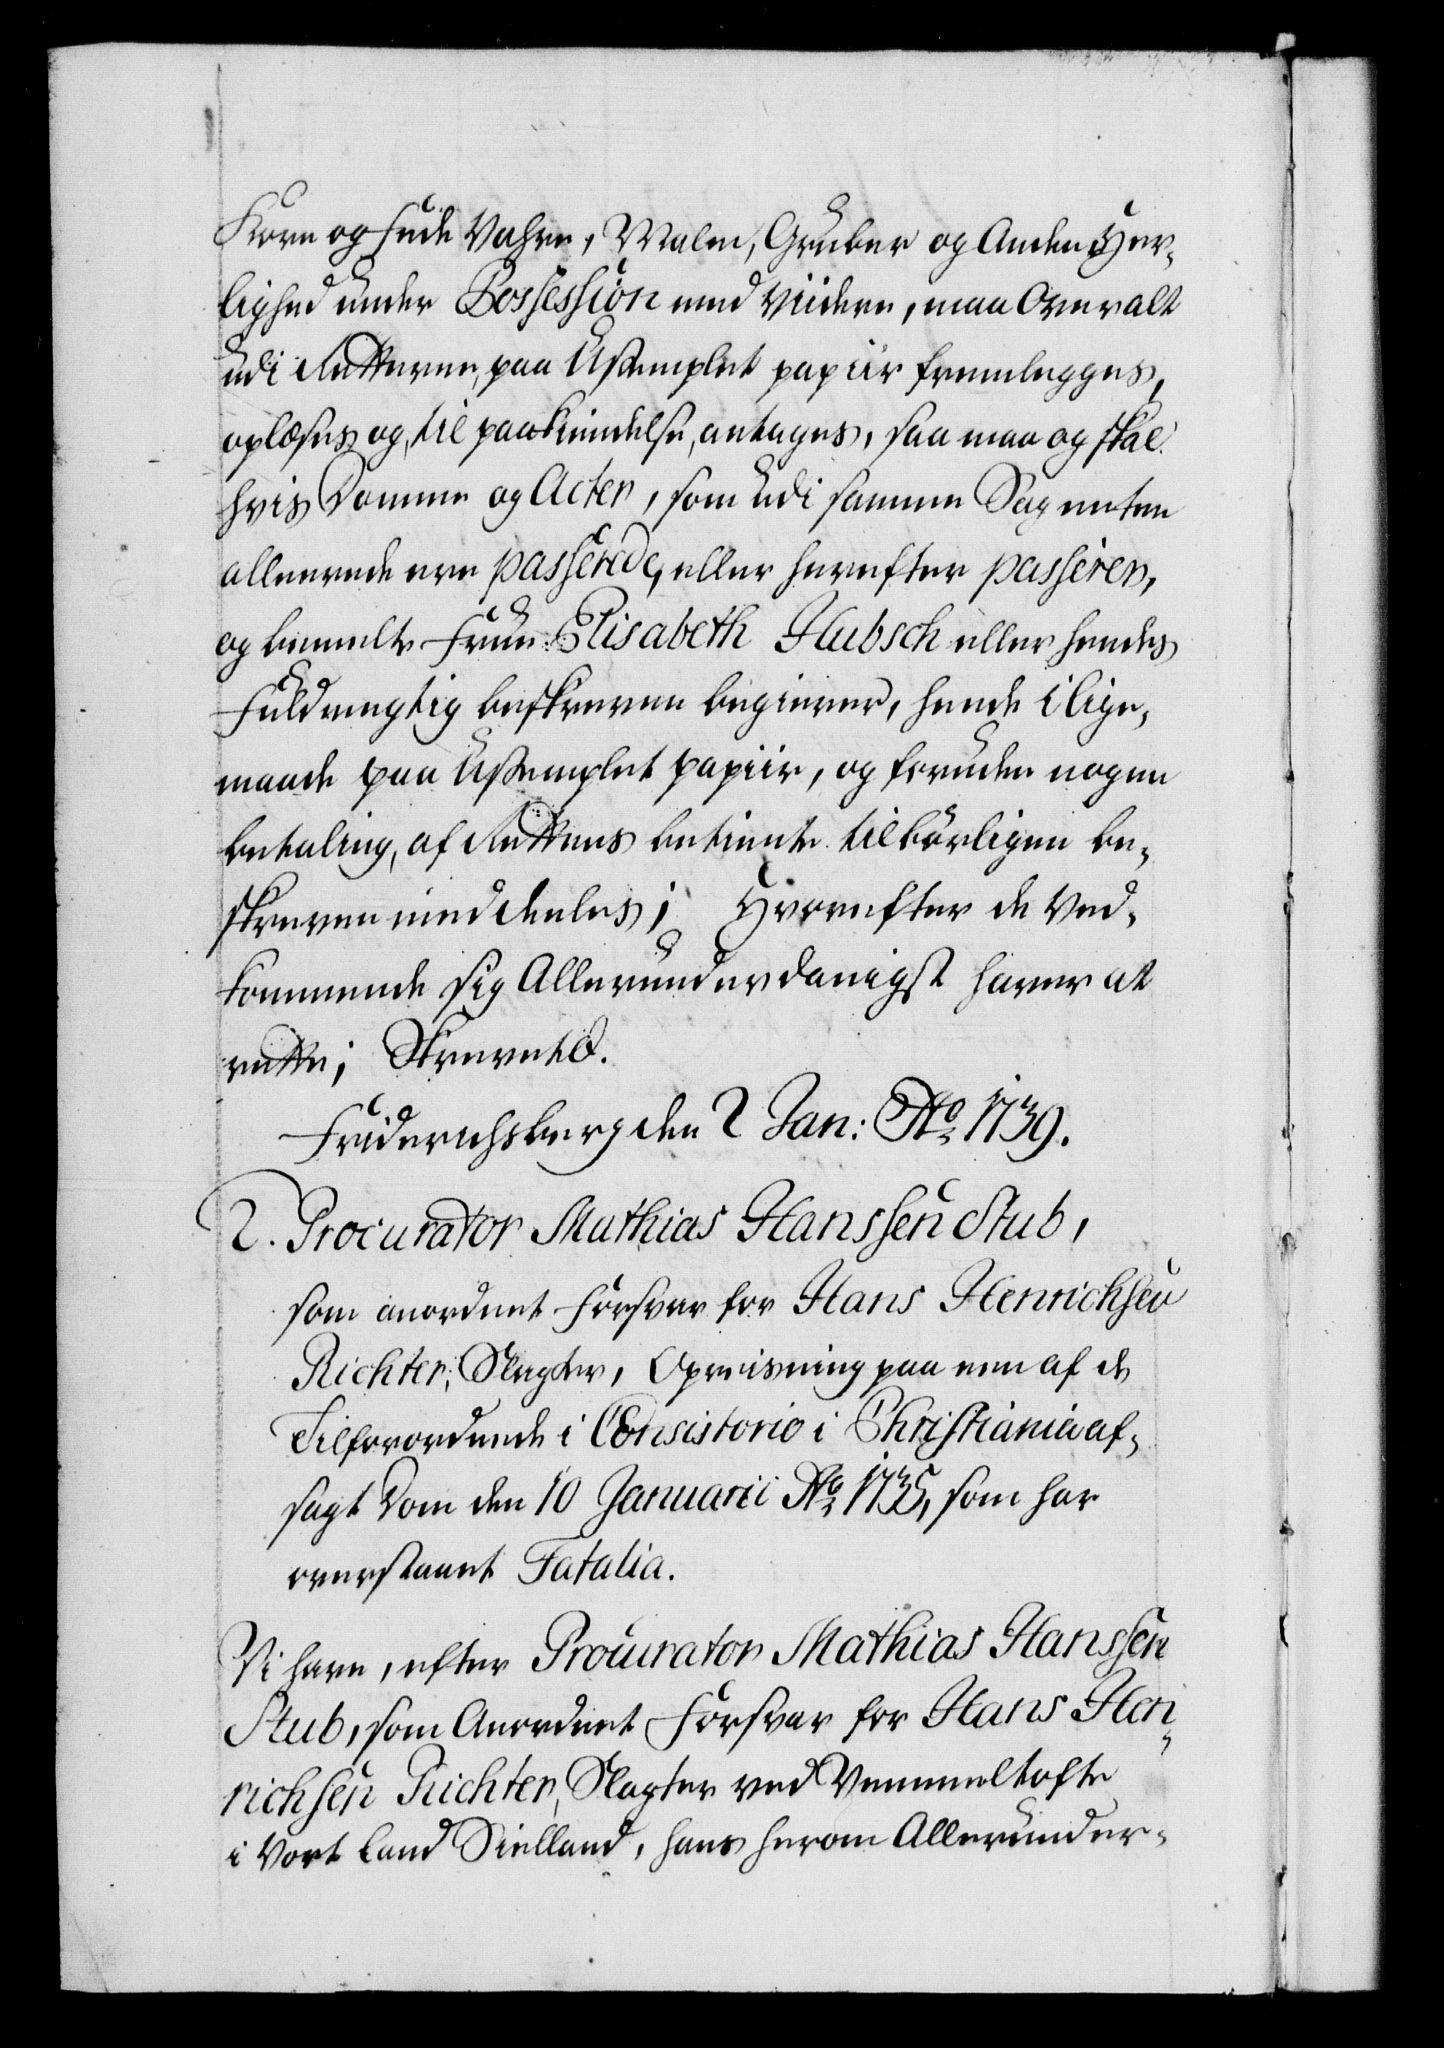 Korn og Fede Vahre, Malm, Gruber og Anden Her-
lighed under Possession med Viidere, maa Overalt
udi Retterne, paa Ustemplet papiir fremlegges,
oplæses og, til paakiendelse, antages, saa maa og skal
hvis Domme og Acter, som udi samme Sag enten
allereede ere passerede, eller herefter passerer,
og bemelte Frue Elisabeth Hubsch eller hendes
Fuldmegtig beskreven begierer, hende i lige-
maade paa Ustemplet papiir, og foruden nogen
betaling, af Rettens betiente tilbørligen be-
skreven meddeeles; Hvorefter de Ved-
kommende sig Allerunderdanigst haver at
rette; Skrevet &.
Friderichsberg den 2 Jan: Ao 1739.
2. Procurator Mathias Hanssen Stub,
som anordnet Forsvar for Hans Henrichsen
Richter, Slagter, Opreisning paa een af de
Tilforordnede i Consistorio i Christiania af-
sagt Dom den 10 Januarii Ao 1735, som har
overstaaet Fatalia.
Vi have, efter Procurator Mathias Hanssen
Stub, som Anordnet Forsvar for Hans Hen-
richsen Richter, Slagter ved Vemmeltofte
i Vort Land Sielland, hans herom Allerunder-